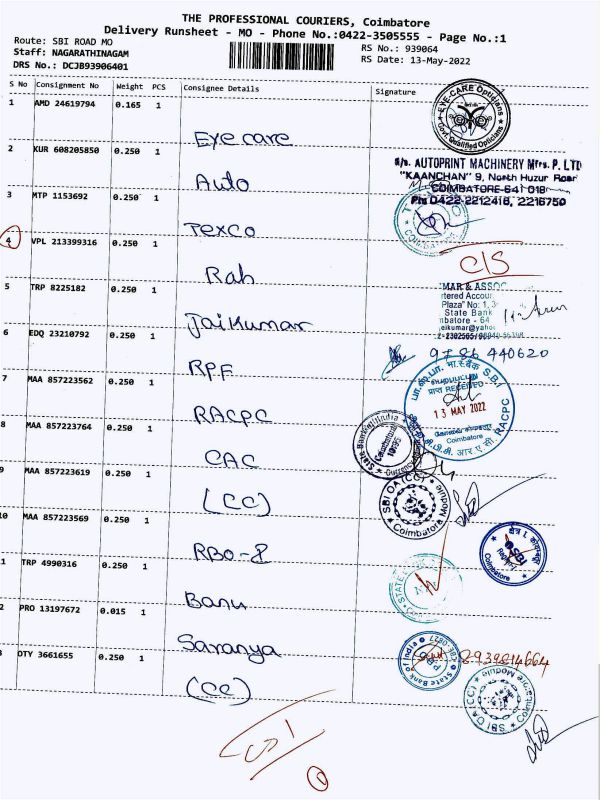 THE PROFESSIONAL COURIERS, Coimbatore
Delivery Runsheet - MO - Phone No.:0422-3505555 - Page No.:1
Route: SBI ROAD MO
RS No.: 939064
Staff: NAGARATHINAGAM
RS Date: 13-May-2022
DRS No.: DCJB93906401
S No Consignment No Weight PCS Consignee Details Signature
1 AMD 24619794 0.165 1
Eye care
EYE-CARE Opticians
Govt. Qualified Opticians
2 KUR 608205850 0.250 1
Auto
M/s. AUTOPRINT MACHINERY Mfrs. P. LTD
"KAANCHAN" 9, North Huzur Road
COIMBATORE-641 018
Ph: 0422-2212416, 2216750
3 MTP 1153692 0.250 1
Texco
COIMBATORE
4 VPL 213399316 0.250 1
Rah
C/S
5 TRP 8225182 0.250 1
Jaikumar
MAR & ASSOC
tered Accour
Plaza" No: 1, 3-
State Bank
nbatore - 64
eikumar@yahoo
2-2302505
6 EDQ 23210792 0.250 1
RPF
9786 440620
7 MAA 857223562 0.250 1
RACPC
प्राप्त RECEIVED
13 MAY 2022
Coimbatore
S.B.I. RACPC
8 MAA 857223764 0.250 1
CAC
State Bank of India
Coimbatore
9 MAA 857223619 0.250 1
(CC)
SBI OA (CC)
Coimbatore Module
10 MAA 857223569 0.250 1
RBO-2
SBI
Coimbatore
1 TRP 4990316 0.250 1
Banu
STATE
2 PRO 13197672 0.015 1
Saranya
State Bank of India
PBB
8939814664
3 DTY 3661655 0.250 1
(CC)
SBI OA (CC)
Coimbatore Module